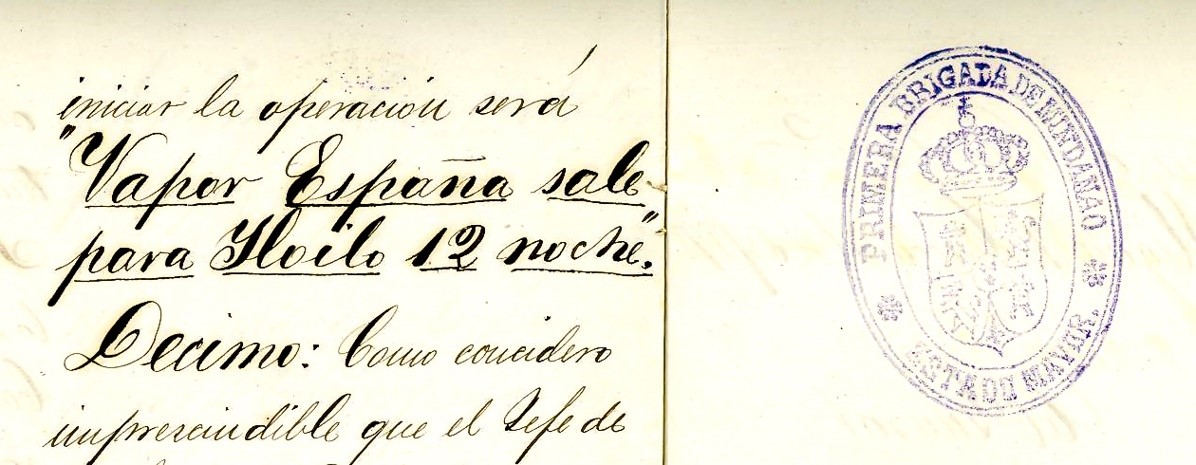 iniciar la operación será
"Vapor España sale
para Iloilo 12 noche".
Decimo: Como concidero
imprescindible que el Jefe de
PRIMERA BRIGADA DE MINDANAO
ESTADO MAYOR.